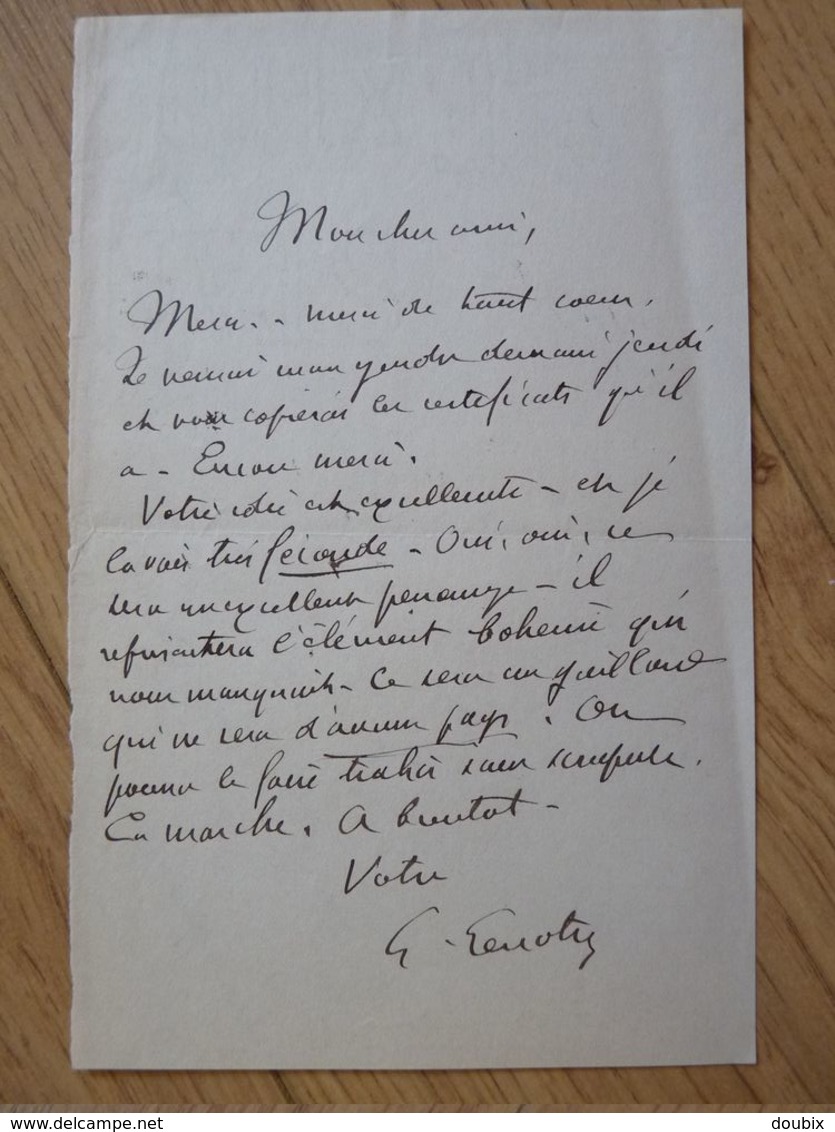 Mon cher ami,
Merci. - merci de tout coeur.
Je verrai mon gendre demain jeudi
et vous copierai les certificats qu'il
a - Encore merci.
Votre idée est excellente - et je
la vois très féconde - Oui, oui, ce
sera un excellent personnage - il
représentera l'élément bohème qui
nous manquait - Ce sera un gaillard
qui ne sera d'aucun pays. On
pourra le faire trahir sans scrupule.
Ça marche. A bientot -
Votre
G.
www.delcampe.net
doubix